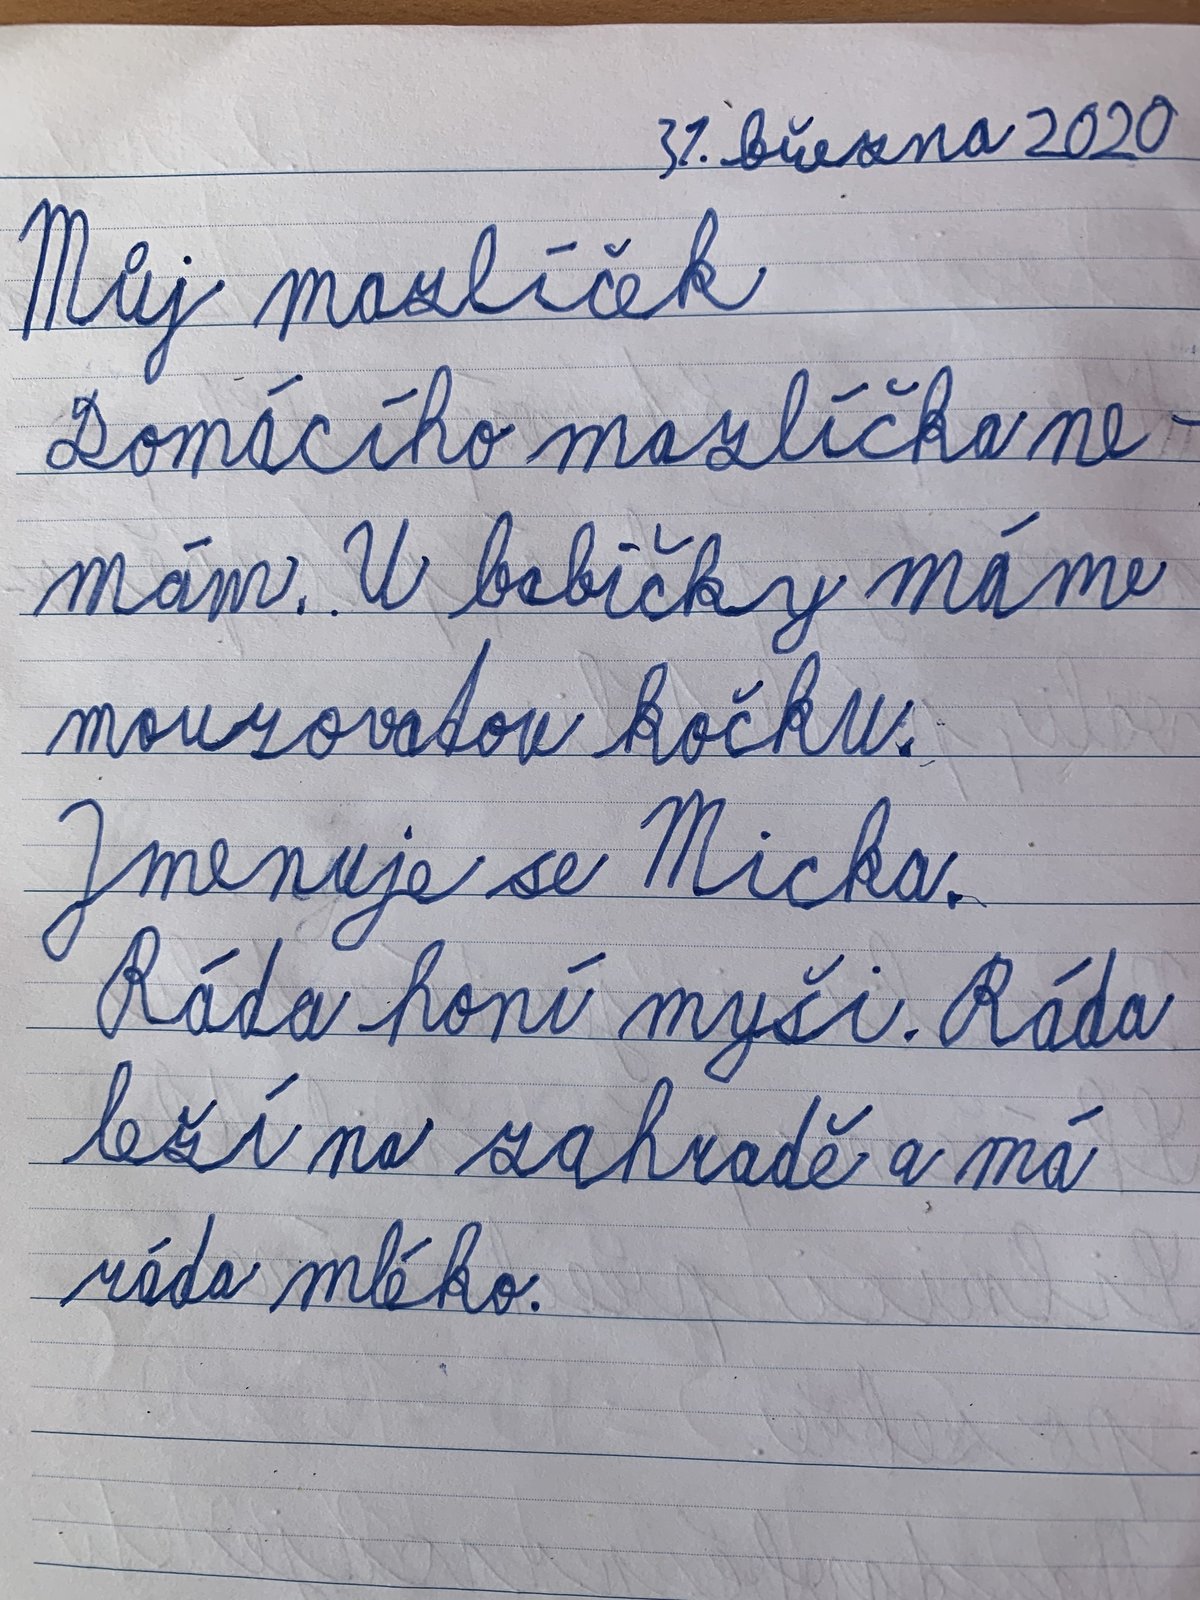 31. března 2020
Můj mazlíček
Domácího mazlíčka ne-
mám. U babičky máme
mourovatou kočku.
Jmenuje se Micka.
Ráda honí myši. Ráda
leží na zahradě a má
ráda mléko.